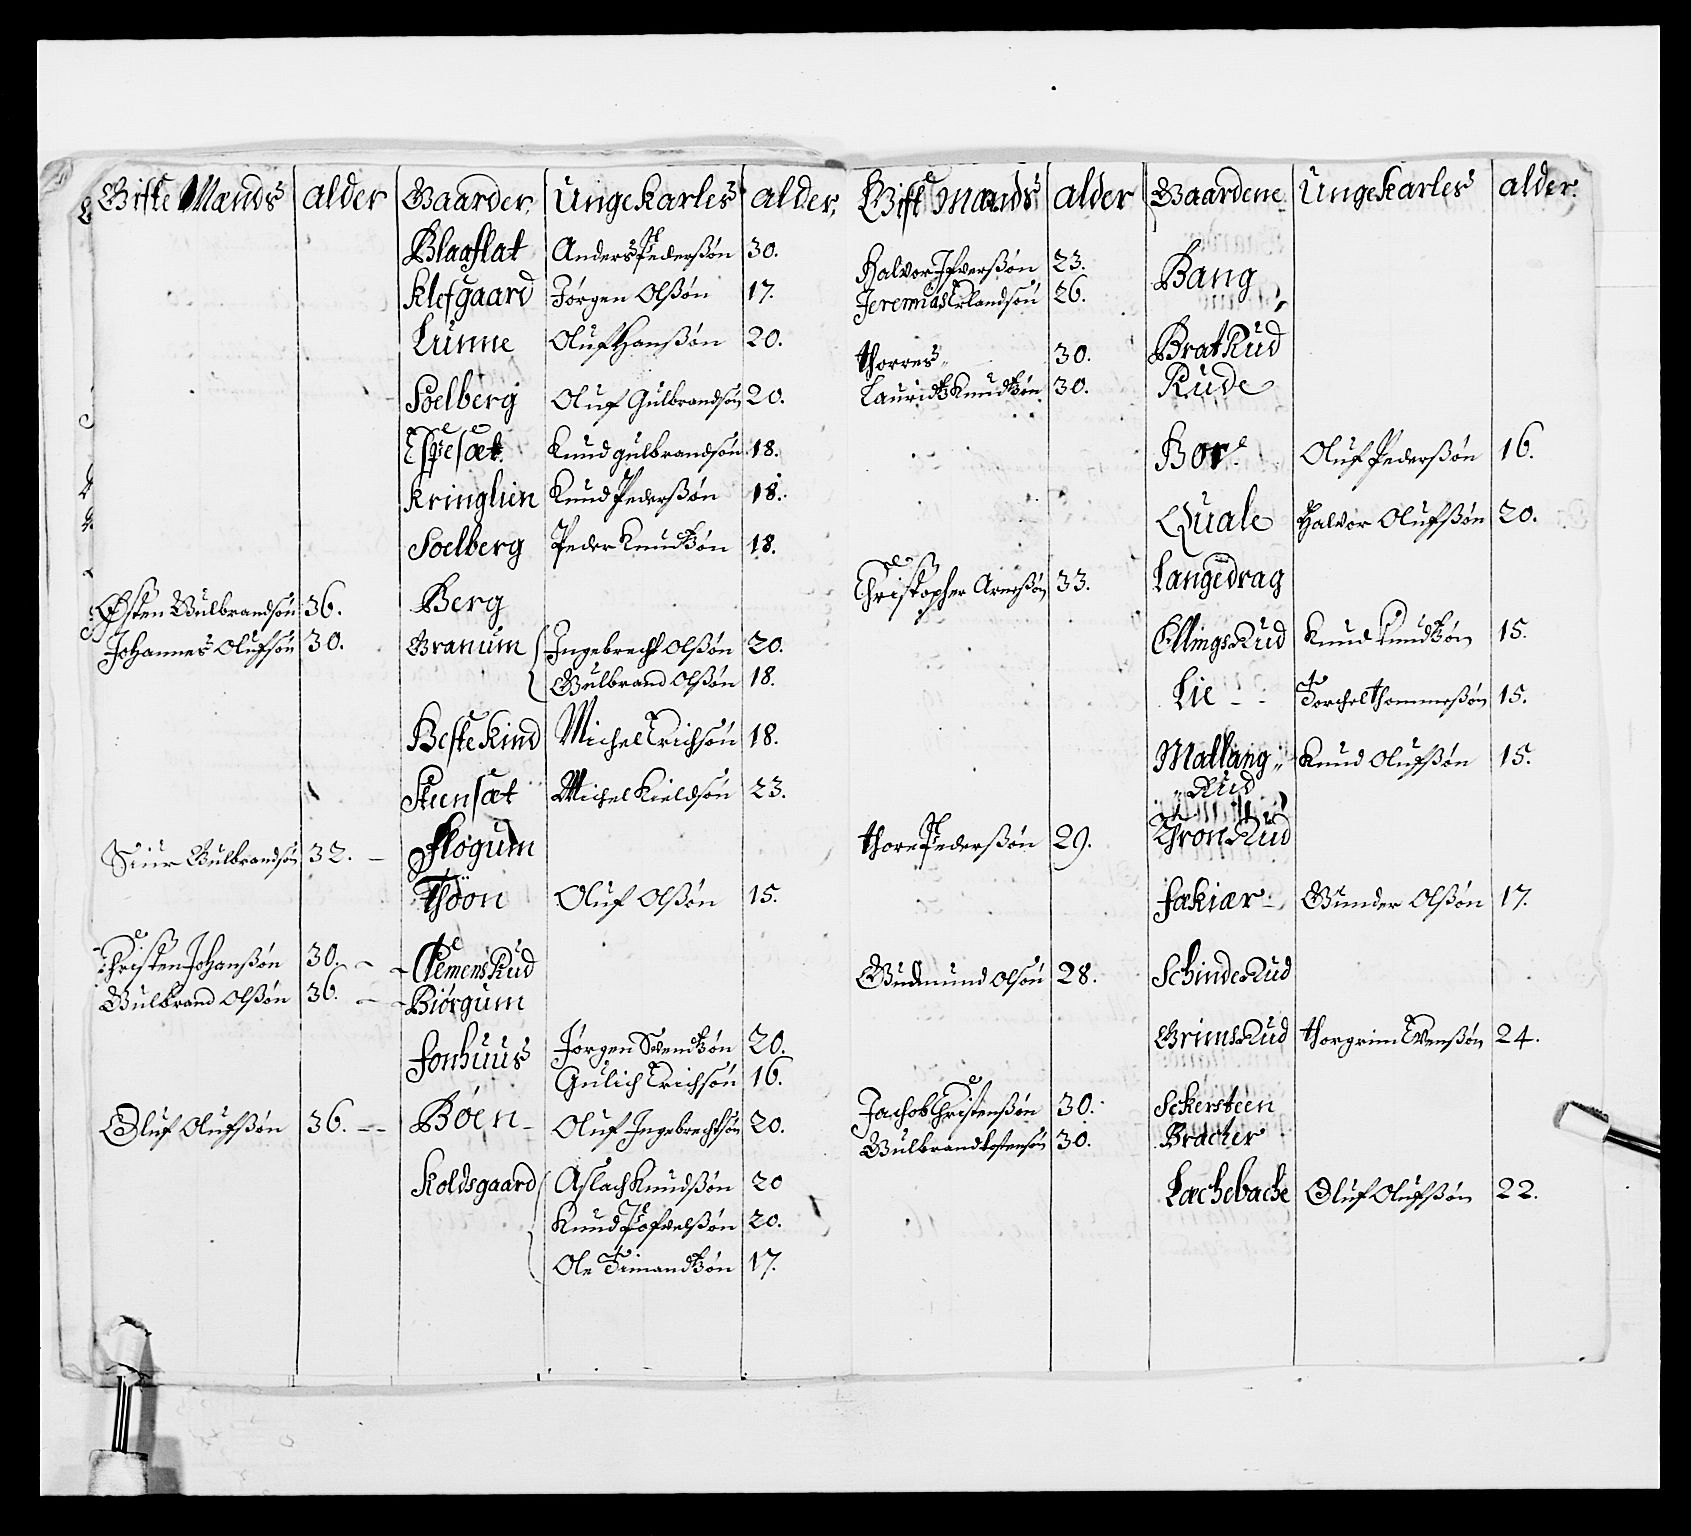 Gifte Mænds alder Gaarder Ungekarles alder.
Blaaflat Anders Pederßøn 30.
Klefgaard Jørgen Olßøn 17.
Lunne Oluf Hanßøn 20.
Soelberg Oluf Gulbrandsøn 20.
Espesæt Knud gulbrandsøn 18.
Kringlien Knud Pederßøn 18.
Soelberg Peder Knudtzøn 18.
Østen Gulbrandsøn 36. Berg
Johannes Olufsøn 30. Granum Ingebrecht Olßøn 20.
Gulbrand Olßøn 18.
Bestekind Michel Erichsøn 18.
Steensæt Michel Kieldsøn 23.
Siur Gulbrandsøn 32. – Flogum
Thöon Oluf Olßøn 15.
Christen Johanßøn 30. – Clemens Rud
Gulbrand Olßøn 36. – Biørgum
Fonhuus Jørgen Svendtzøn 20.
Gulich Erichsøn 16.
Oluf Olufsøn 36. – – Bøen – Oluf Ingebrechtsøn 20.
Koldsgaard Aslach Knudßøn 20
Knud Pofvelßøn 20.
Ole Simandtzøn 17.
Gift Mænds alder Gaardene Ungekarles alder.
Halvor Ifverßøn 23. Bang
Jeremias Erlandsøn 26.
Thorres 30. Brat Rud
Lauridtz Knudtzøn 30. Rude
Bor Oluf Pederßøn 16.
Quale Halvor Olufsøn 20.
Christopher Arneßøn 33. Langedrag
Ellings Rud Knud Knudtzøn 15.
Lie – – Torchel Thommeßøn 15.
Mallang„ Knud Olufsøn 15.
„Rud
Thore Pederßøn 29. Thron Rud
Fækiær – Gunder Olßøn 17.
Gudmund Olsøn 28. Schinde Rud
Grims Rud Thorgrim Evenßøn 24.
Jachob Christenßøn 30. Sckersteen
Gulbrand Østensøn 30. Bracher
Lachebache Oluf Olufsøn 22.